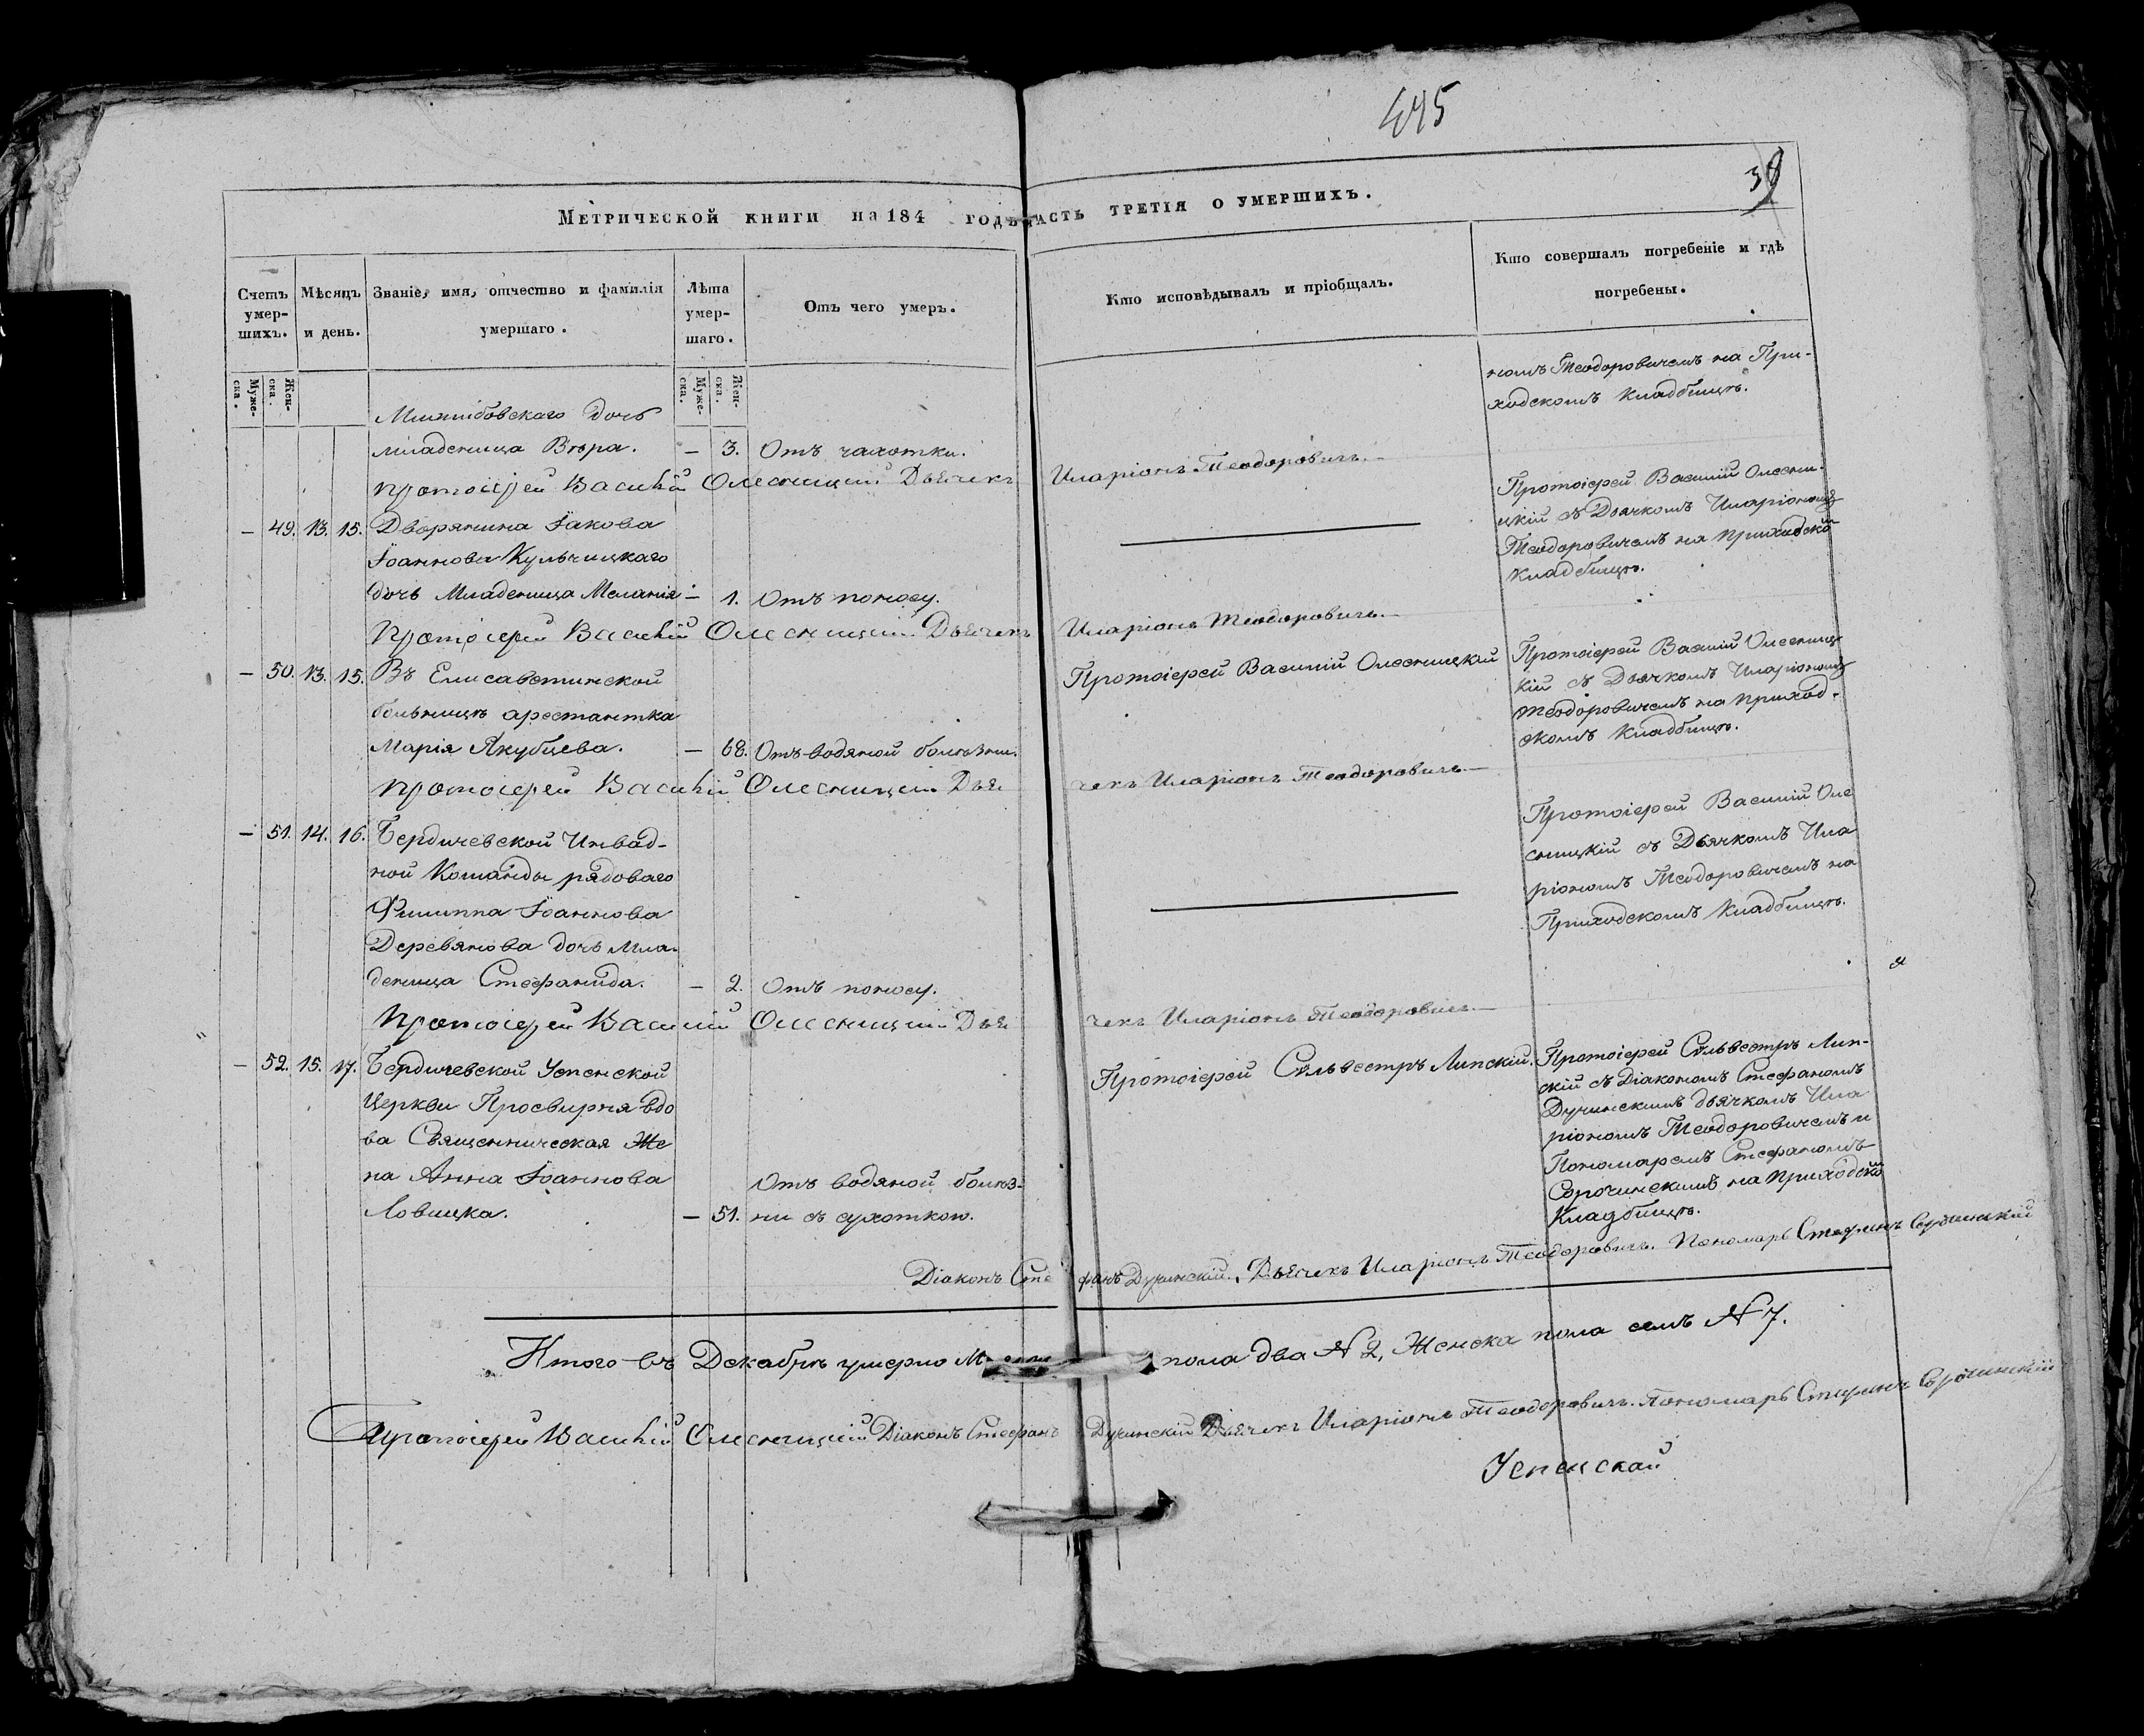 445
39
Метрической книги на 184 годъ часть третія о умершихъ.
Счетъ умер-шихъ.
Мѣсяцъ и день.
Званіе, имя, отчество и фамилія умершаго.
Лѣта умер-шаго.
Отъ чего умеръ.
Кто исповѣдывалъ и пріобщалъ.
Кто совершалъ погребеніе и гдѣ погребены.
Муже-ска.
Жен-ска.
Муже-ска.
Жен-ска.
дочь
младеница Вѣра. — 3. Отъ чахотки.
номъ Теодоровичемъ на При-
ходскомъ Кладбищѣ.
Протоіерей Василій Олесницкій Дьячекъ Иларіонъ Теодоровичъ.—
— 49. 13. 15. Дворянина Іакова
Іоаннова Кульчицкаго
дочь Младеница Меланія — 1. Отъ поносу.
Протоіерей Василій Олесни-
цкій съ Дьячкомъ Иларіономъ
Теодоровичемъ на приходском
Кладбищѣ.
Протоіерей Василій Олесницкій Дьячекъ Иларіонъ Теодоровичъ.—
— 50. 13. 15. Въ Елисаветинской
больницѣ арестантка
Марія Якубцева. — 68. Отъ водяной болѣзни.
Протоіерей Василій Олесницкій
Протоіерей Василій Олесниц
кій съ Дьячкомъ Иларіономъ
Теодоровичемъ на приход-
скомъ Кладбищѣ.
Протоіерей Василій Олесницкій Дья чекъ Иларіонъ Теодоровичъ.—
— 51. 14. 16. Бердичевской Инвад-
ной Команды рядоваго
Филиппа Іоаннова
Деревянова дочь мла-
деница Стефанида. — 2. Отъ поносу.
Протоіерей Василій Оле
сницкій съ Дьячкомъ Ила
ріономъ Теодоровичемъ на
Приходскомъ Кладбищѣ.
Протоіерей Василій Олесницкій Дья чекъ Иларіонъ Теодоровичъ.—
— 52. 15. 17. Бердичевской Успенской
Церкви Просвирня вдо
ва Священническая Же
на Анна Іоаннова
Ловицка. — 51.
Отъ водяной болѣз-
ни съ сухоткою.
Протоіерей Сильвестръ Липскій.
Протоіерей Сильвестръ Лип-
скій съ Діакономъ Стефаномъ
Дучинскимъ дьячкомъ Ила
ріономъ Теодоровичемъ и
Пономаремъ Стефаномъ
Сорочинскимъ на приходском
Кладбищѣ.
Діаконъ Сте фанъ Дучинскій. Дьячекъ Иларіонъ Теодоровичъ. Пономарь Стефанъ Сорочинскій
Итого въ Декабрѣ умерло пола два № 2, Женска пола семь № 7.
Протоіерей Василій Олесницкій Діаконъ Стефанъ Дучинскій Дьячекъ Иларіонъ Теодоровичъ. Пономарь Стефанъ Сорочинскій
Успенской